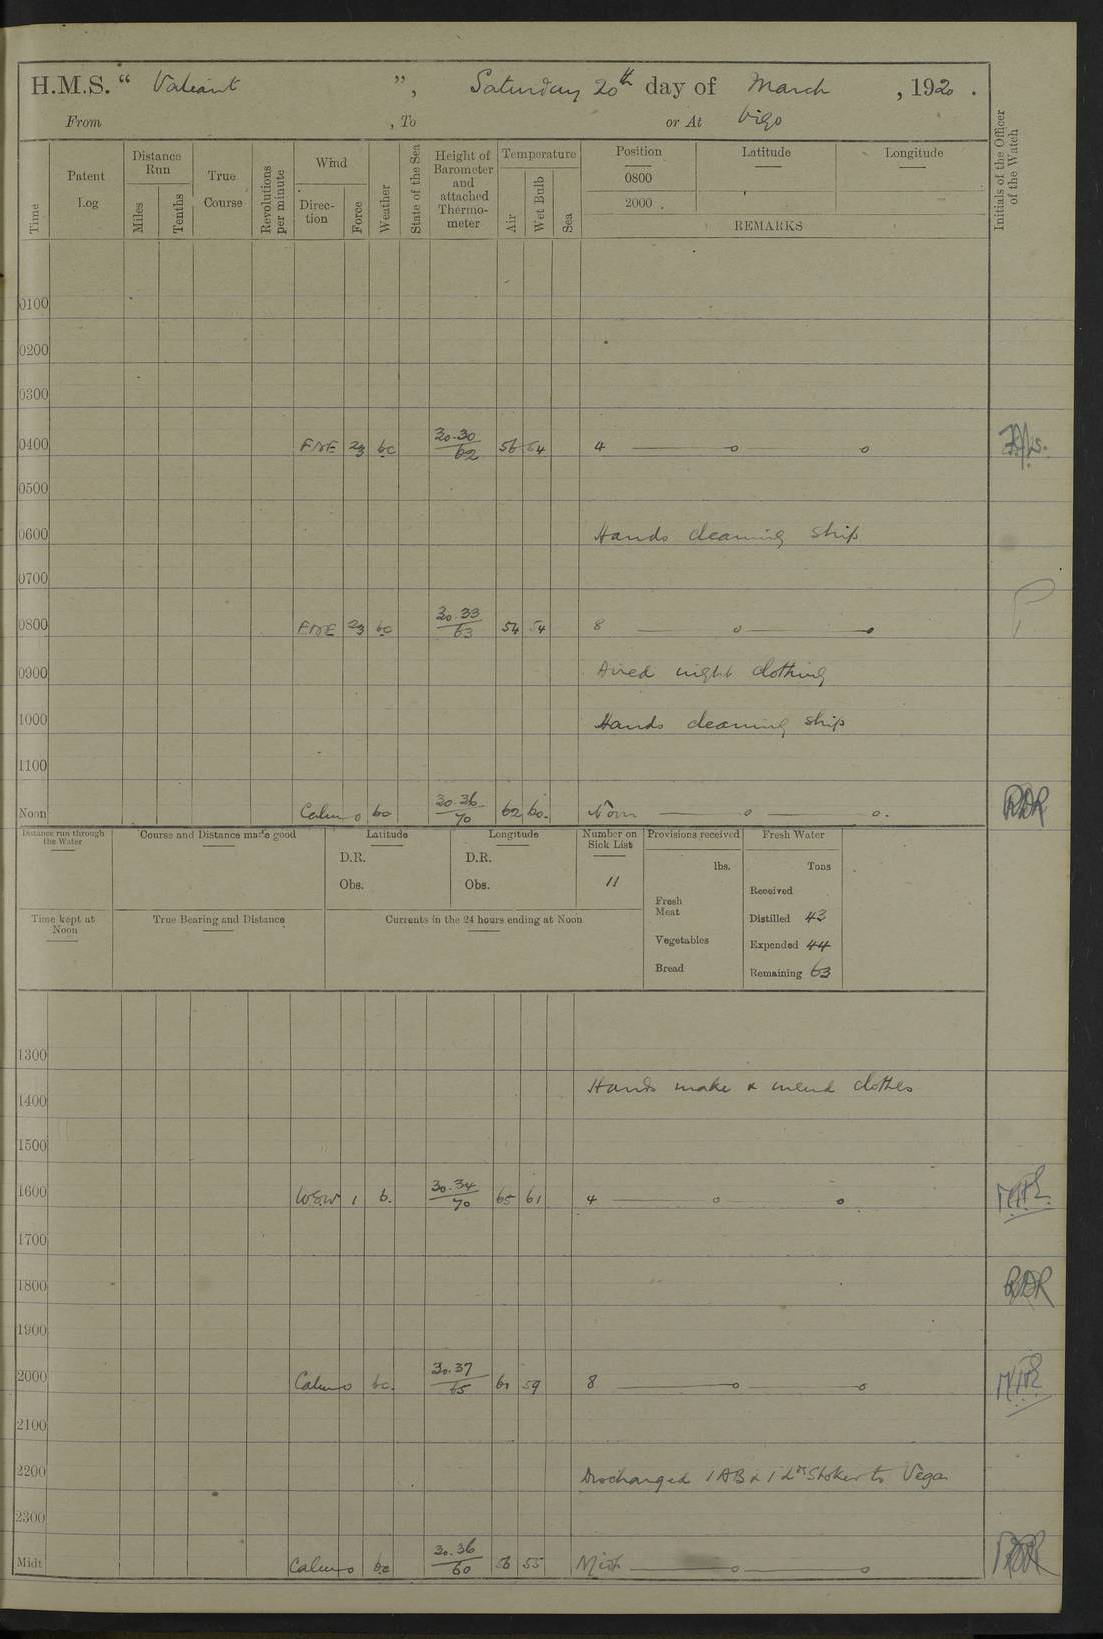 H.M.S. “ Valiant ”, Saturday 20th day of March , 1920 .
From , To or At Vigo
Time Patent Log Distance Run Miles Tenths True Course Revolutions per minute Wind Direc- tion Force Weather State of the Sea Height of Barometer and attached Thermo- meter Temperature Air Wet Bulb Sea Position 0800 2000 . Latitude Longitude REMARKS Initials of the Officer of the Watch
0100
0200
0300
0400 ENE 23 bc 30.30 62 56 54 4 o o
0500
0600 Hands cleaning ship
0700
0800 ENE 23 bc 30.33 63 54 54 8 o o
0900 Aired night clothing
1000 Hands cleaning ship
1100
Noon Calm o bc 30.36 70 62 60. Noon o o. RDR
Distance run through the Water Course and Distance made good Latitude Longitude Number on Sick List Provisions received Fresh Water
D.R. D.R. lbs. Tons
Obs. Obs. 11 Received
Fresh Meat
Time kept at Noon True Bearing and Distance Currents in the 24 hours ending at Noon Distilled 43
Vegetables Expended 44
Bread Remaining 63
1300
Hands make & mend clothes
1400
1500
1600 WSW 1 b. 30.34 70 65 61 4 o o
1700
1800 RDR
1900
2000 Calm o bc. 30.37 65 60 59 8 o o
2100
2200 Discharged 1 AB & 1 Ldg Stoker to Vega
2300
Midt Calm o bc 30.36 60 56 55 Midt o o RDR